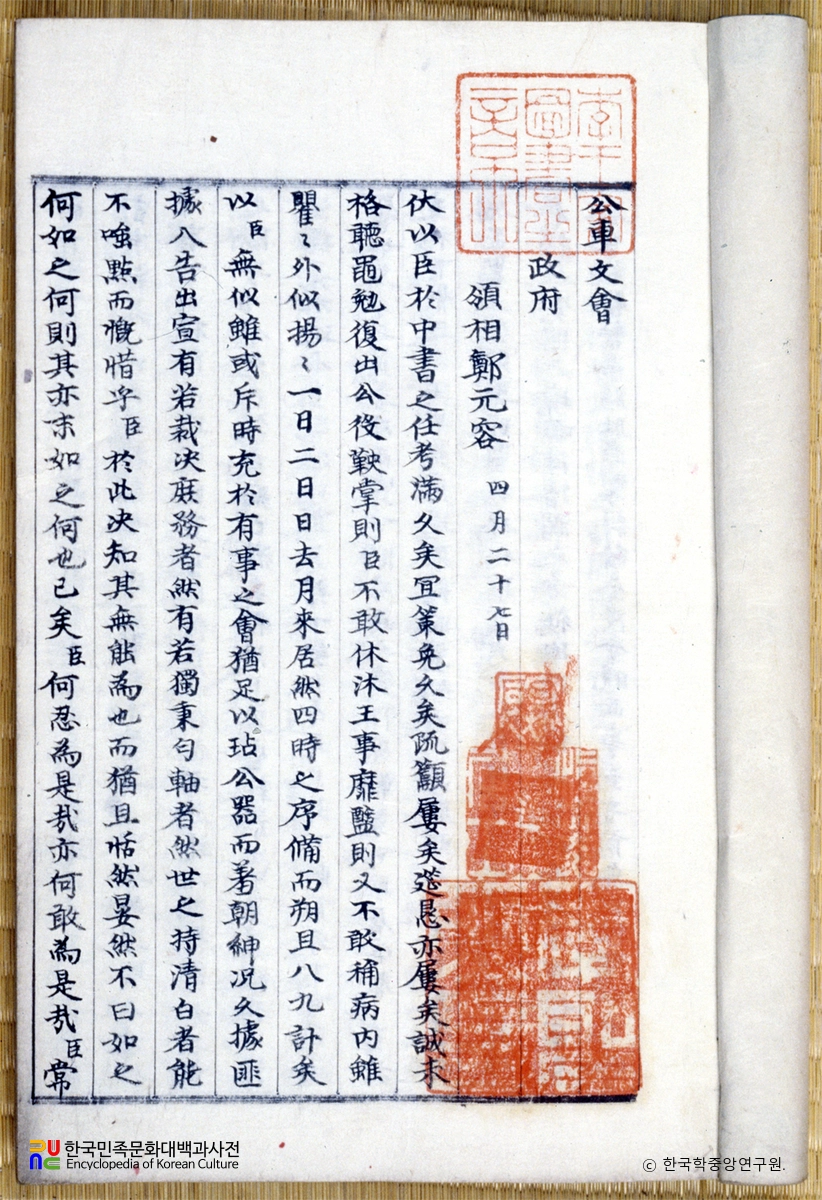 公車文會
政府
領相鄭元容 四月二十七日
伏以臣於中書之任考滿久矣冝策免久矣疏籲屢矣筵懇亦屢矣誠未
格聽黽勉復出公役鞅掌則臣不敢休沐王事靡盬則又不敢稱病內雖
瞿〻外似揚〻一日二日日去月來居然四時之序備而朔且八九計矣
以臣無似雖或斥時充於有事之會猶足以玷公器而羞朝紳况久據匪
據入告出宣有若裁决庶務者然有若獨秉匀軸者然世之持清白者能
不嗤點而慨惜乎臣於此决知其無能為也而猶且恬然晏然不曰如之
何如之何則其亦末如之何也已矣臣何忍為是㦲亦何敢為是㦲臣常
한국민족문화대백과사전
Encyclopedia of Korean Culture
© 한국학중앙연구원.